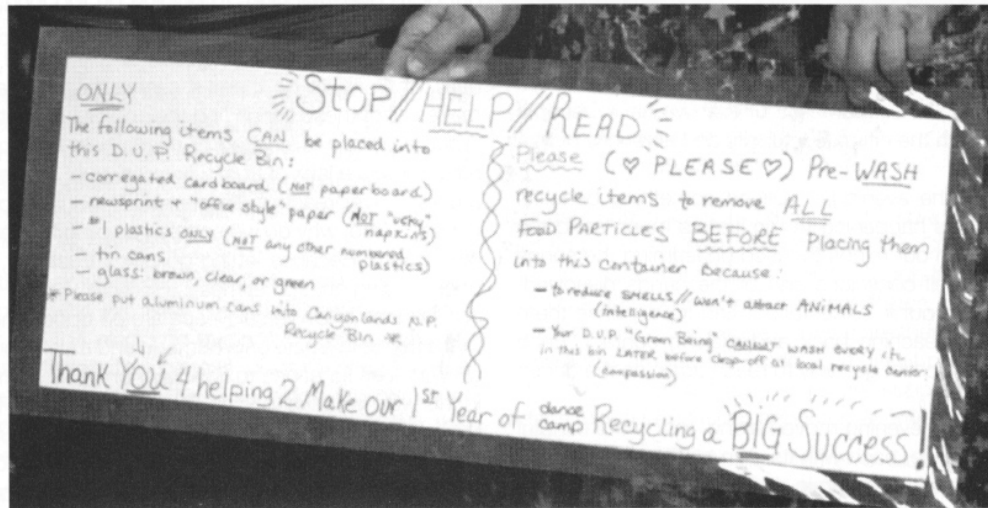 STOP//HELP//READ
ONLY
The following items CAN be placed into
this D.U.P. Recycle Bin:
- corregated cardboard (NOT paperboard)
- newsprint + "office style" paper (NOT "ucky"
napkins)
- #1 plastics ONLY (NOT any other numbered
plastics)
- tin cans
- glass: brown, clear, or green
* Please put aluminum cans into Canyonlands N.P.
Recycle Bin *
Please (♡ PLEASE ♡) Pre-WASH
recycle items to remove ALL
FOOD PARTICLES BEFORE Placing them
into this container Because:
- to reduce SMELLS // won't attract ANIMALS
(intelligence)
- Your D.U.P. "Green Being" CANNOT WASH EVERY
in this bin LATER before drop-off at local recycle center
(compassion)
Thank YOU 4 helping 2 Make our 1ST Year of dance camp Recycling a BIG Success!